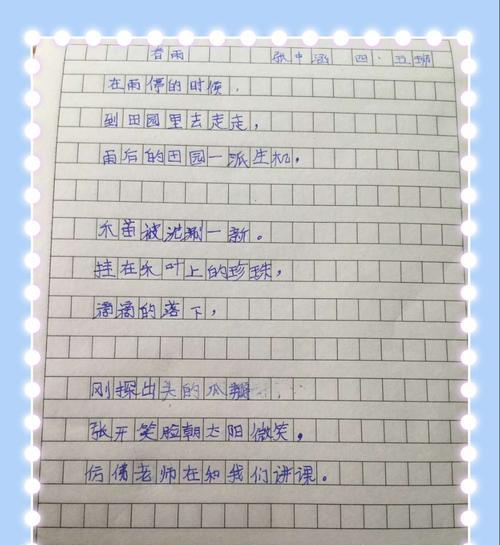 春雨 张中涵 四·五班
在雨停的时候，
到田园里去走走，
雨后的田园一派生机，
禾苗被洗刷一新。
挂在禾叶上的珍珠，
滴滴的落下，
刚探出头的瓜
张开笑脸朝太阳微笑。
仿佛老师在和我们讲课。